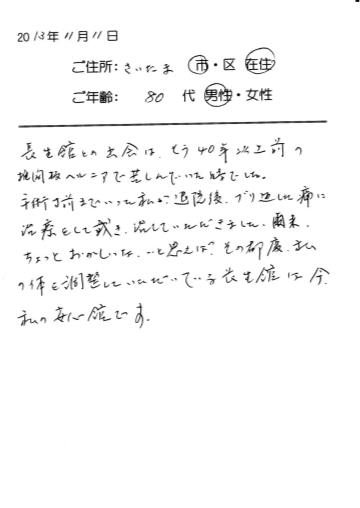 2013年11月11日
ご住所:さいたま 市・区 在住
ご年齢: 80 代 男性・女性
長生館との出会は、もう40年以上前の
椎間板ヘルニアで苦しんでいた時でした。
手術寸前までいった私が退院後、ブリ返した痛に
治療をして戴き、治していただきました。爾来、
ちょっとおかしいな、と思えば、その都度、私
の体を調整していただいている長生館は今、
私の安心館です。